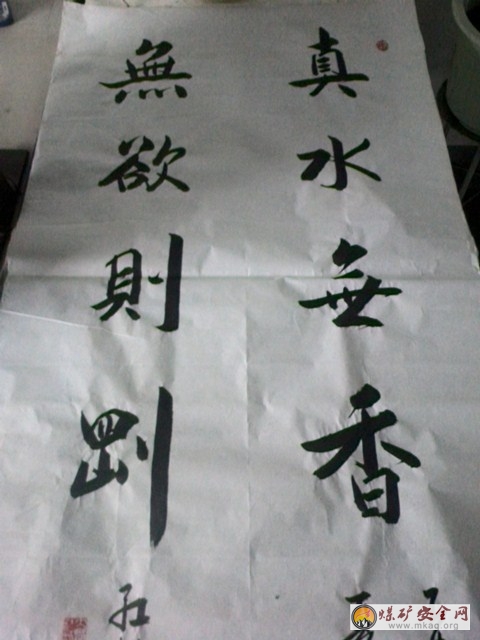 真水無香
無欲則剛
煤矿安全网
www.mkaq.org